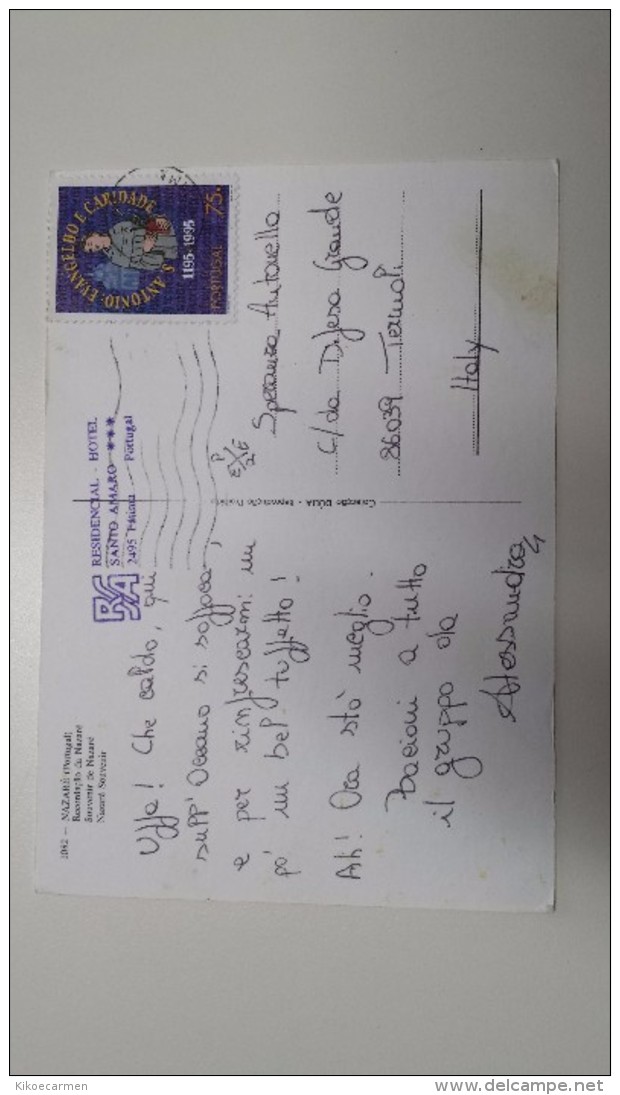 1082 — NAZARÉ (Portugal)
Recordação da Nazaré
Souvenir de Nazaré
Nazaré Souvenir
Uffa! Che caldo, qui
sull'Oceano si soffoca,
e per rinfrescarmi un
po' un bel tuffetto!
Ah! Ora stò meglio.
Bacioni a tutto
il gruppo da
Alessandra
RA
RESIDENCIAL - HOTEL
SANTO AMARO ***
2495 Fátima — Portugal
S. ANTONIO: EVANGELHO E CARIDADE
1195-1995
PORTUGAL 75.
Speranza Antonella
C/da Difesa Grande
86039 Termoli
Italy
Colecção DÚLIA
Kikoecarmen
www.delcampe.net